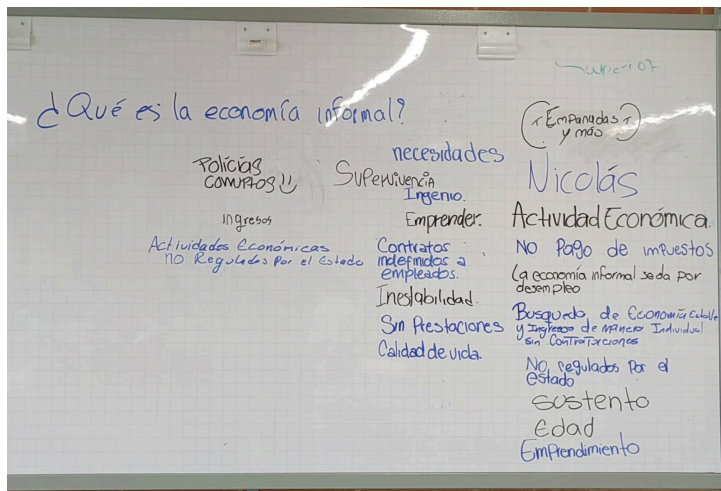 ¿Qué es la economía informal?
Policías
corruptos
Ingresos
Actividades Económicas
no Regulados Por el Estado
necesidades
Supervivencia
Ingenio.
Emprender.
Contratos
indefinidos a
empleados.
Inestabilidad.
Sin Prestaciones
Calidad de vida.
Superior
Empanadas
y más
Nicolás
Actividad Económica.
NO Pago de impuestos
La economía informal se da por
desempleo
Busqueda de Economía Estable
y Ingresos de manera Individual
sin Contrataciones
No regulados Por el
estado
sustento
Edad
Emprendimiento